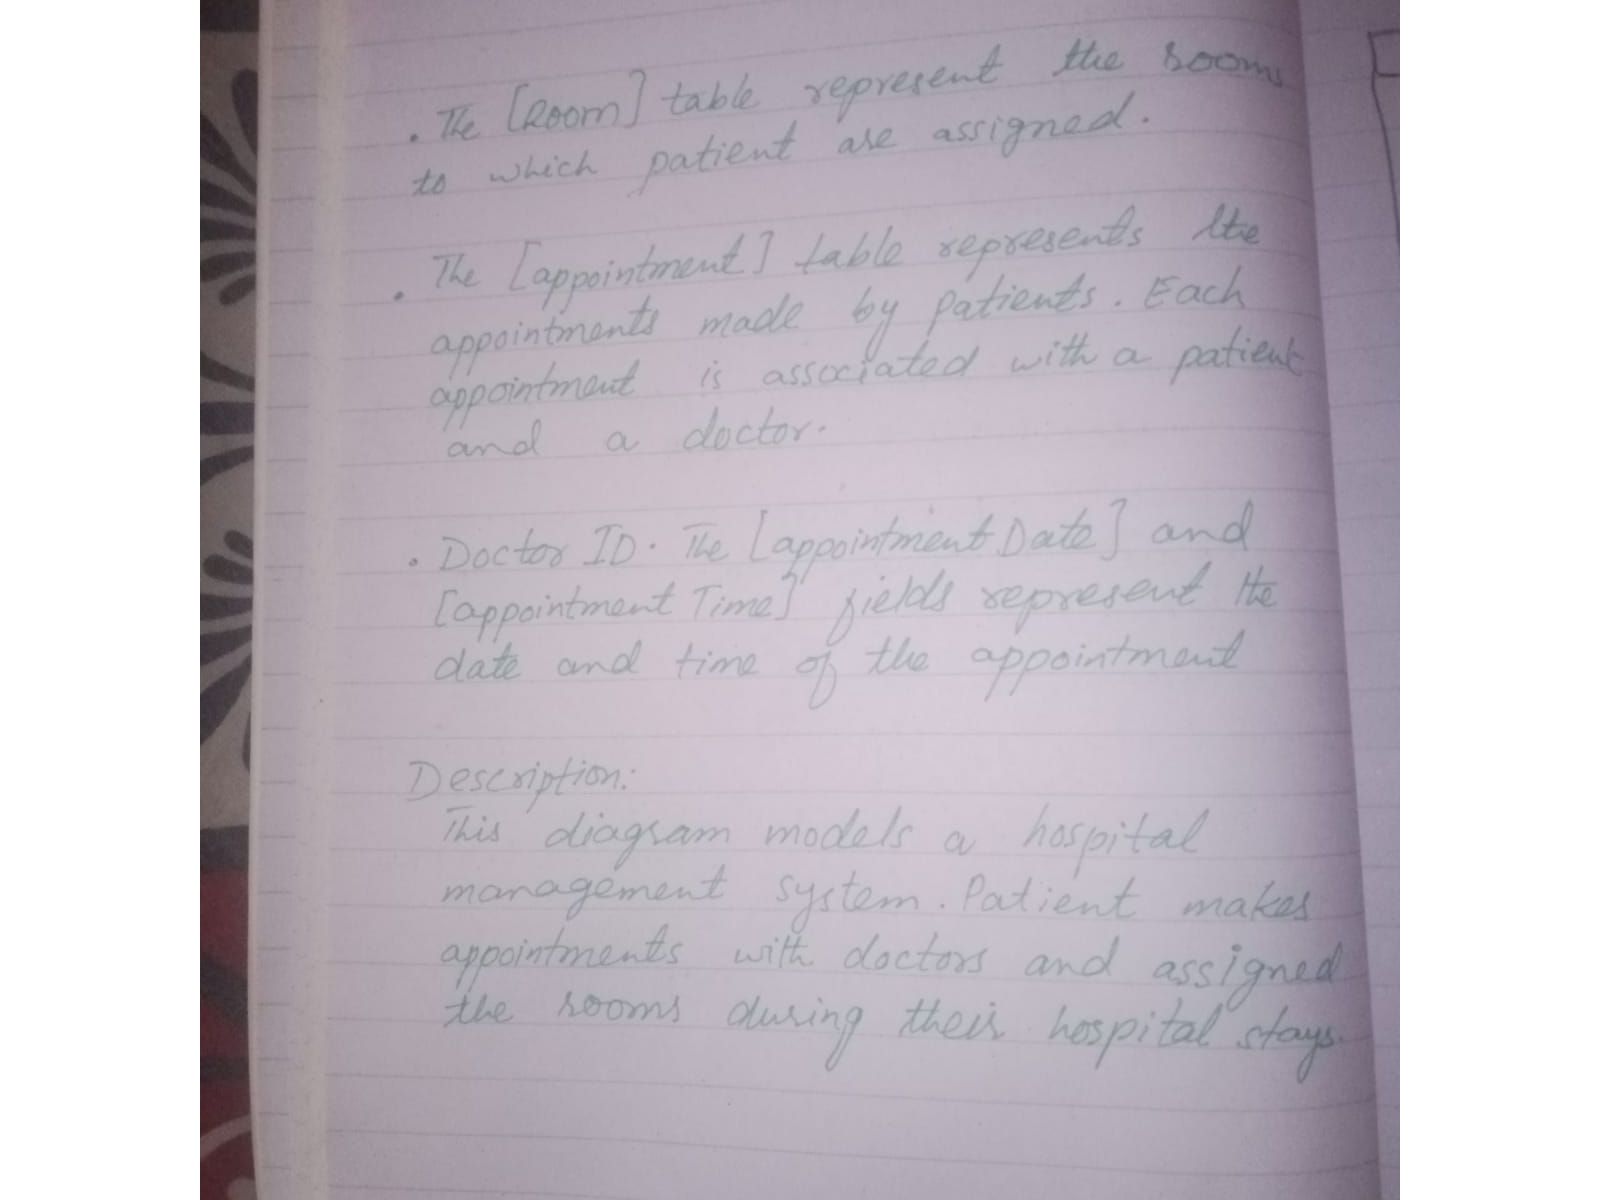 . The [Room] table represent the rooms
to which patient are assigned.
. The [appointment] table represents the
appointments made by patients. Each
appointment is associated with a patient
and a doctor.
. Doctor ID. The [appointment Date] and
[appointment Time] fields represent the
date and time of the appointment
Description:
This diagram models a hospital
management system. Patient makes
appointments with doctors and assigned
the rooms during their hospital stays.